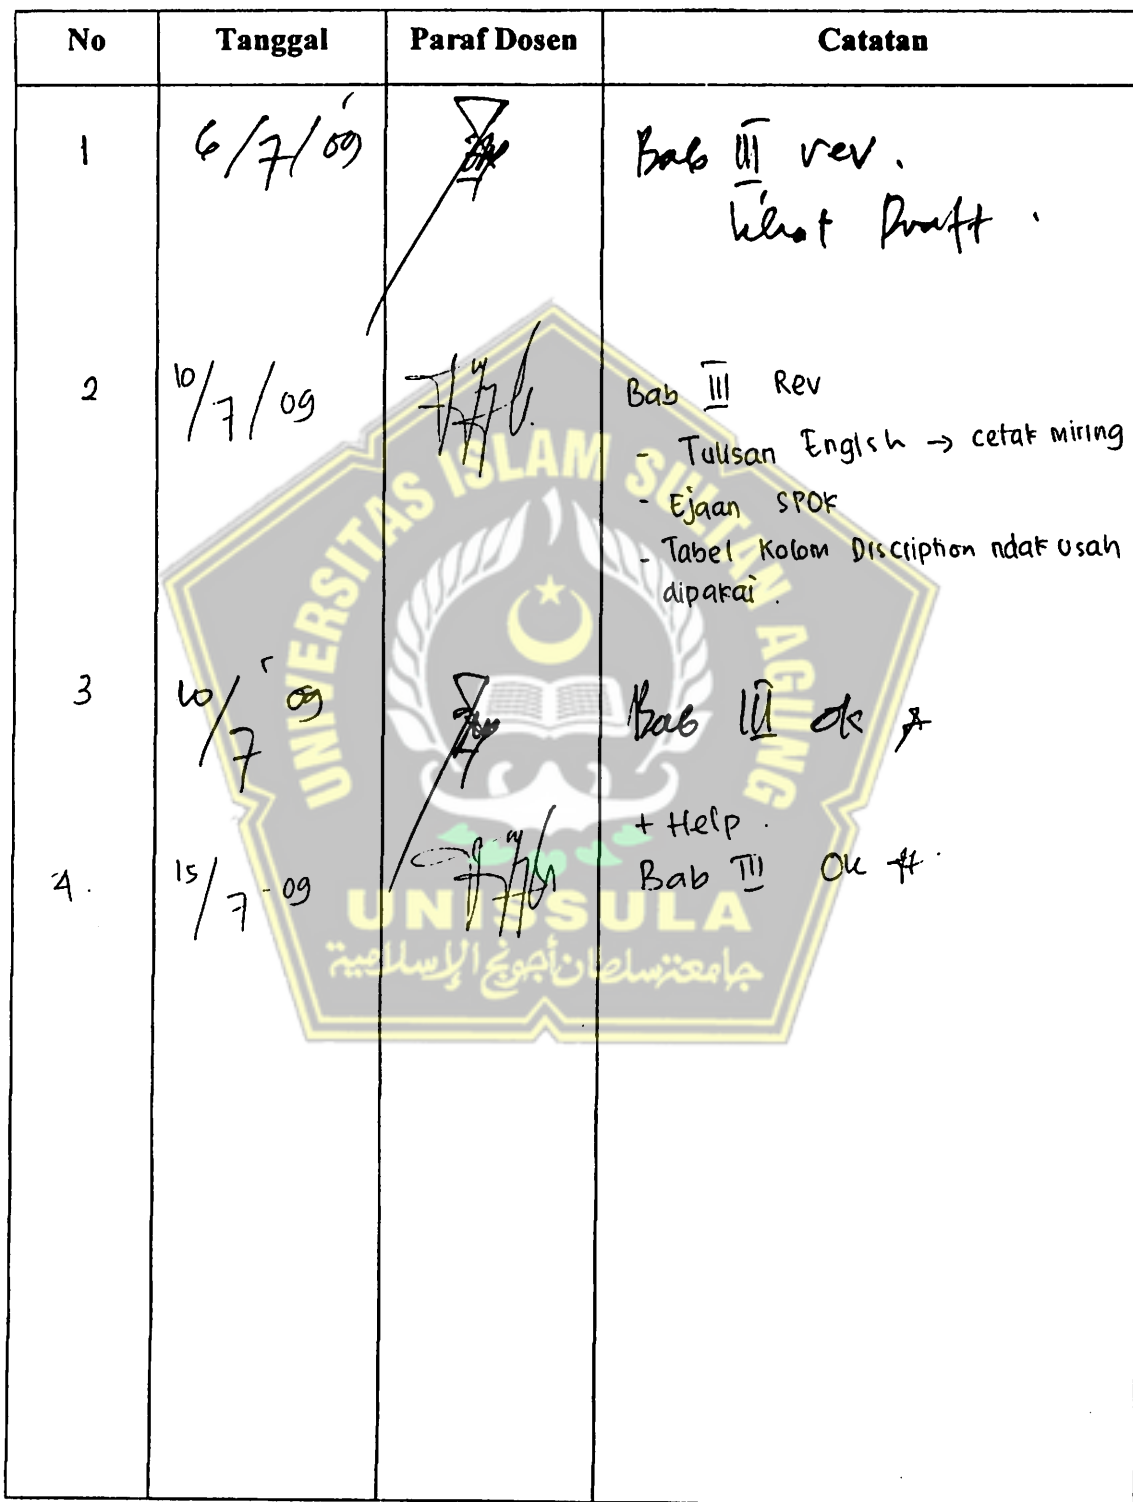 No Tanggal Paraf Dosen Catatan
1 6/7/09 Bab III rev.
Lihat Draft.
2 10/7/09 Bab III Rev
- Tulisan English → cetak miring
- Ejaan SPOK
- Tabel Kolom Discription ndak usah
dipakai.
3 10/7 09 Bab III ok
+ Help.
4. 15/7-09 Bab III Ok
UNIVERSITAS ISLAM SULTAN AGUNG
UNISSULA
جامعة سلطان أجونج الإسلامية